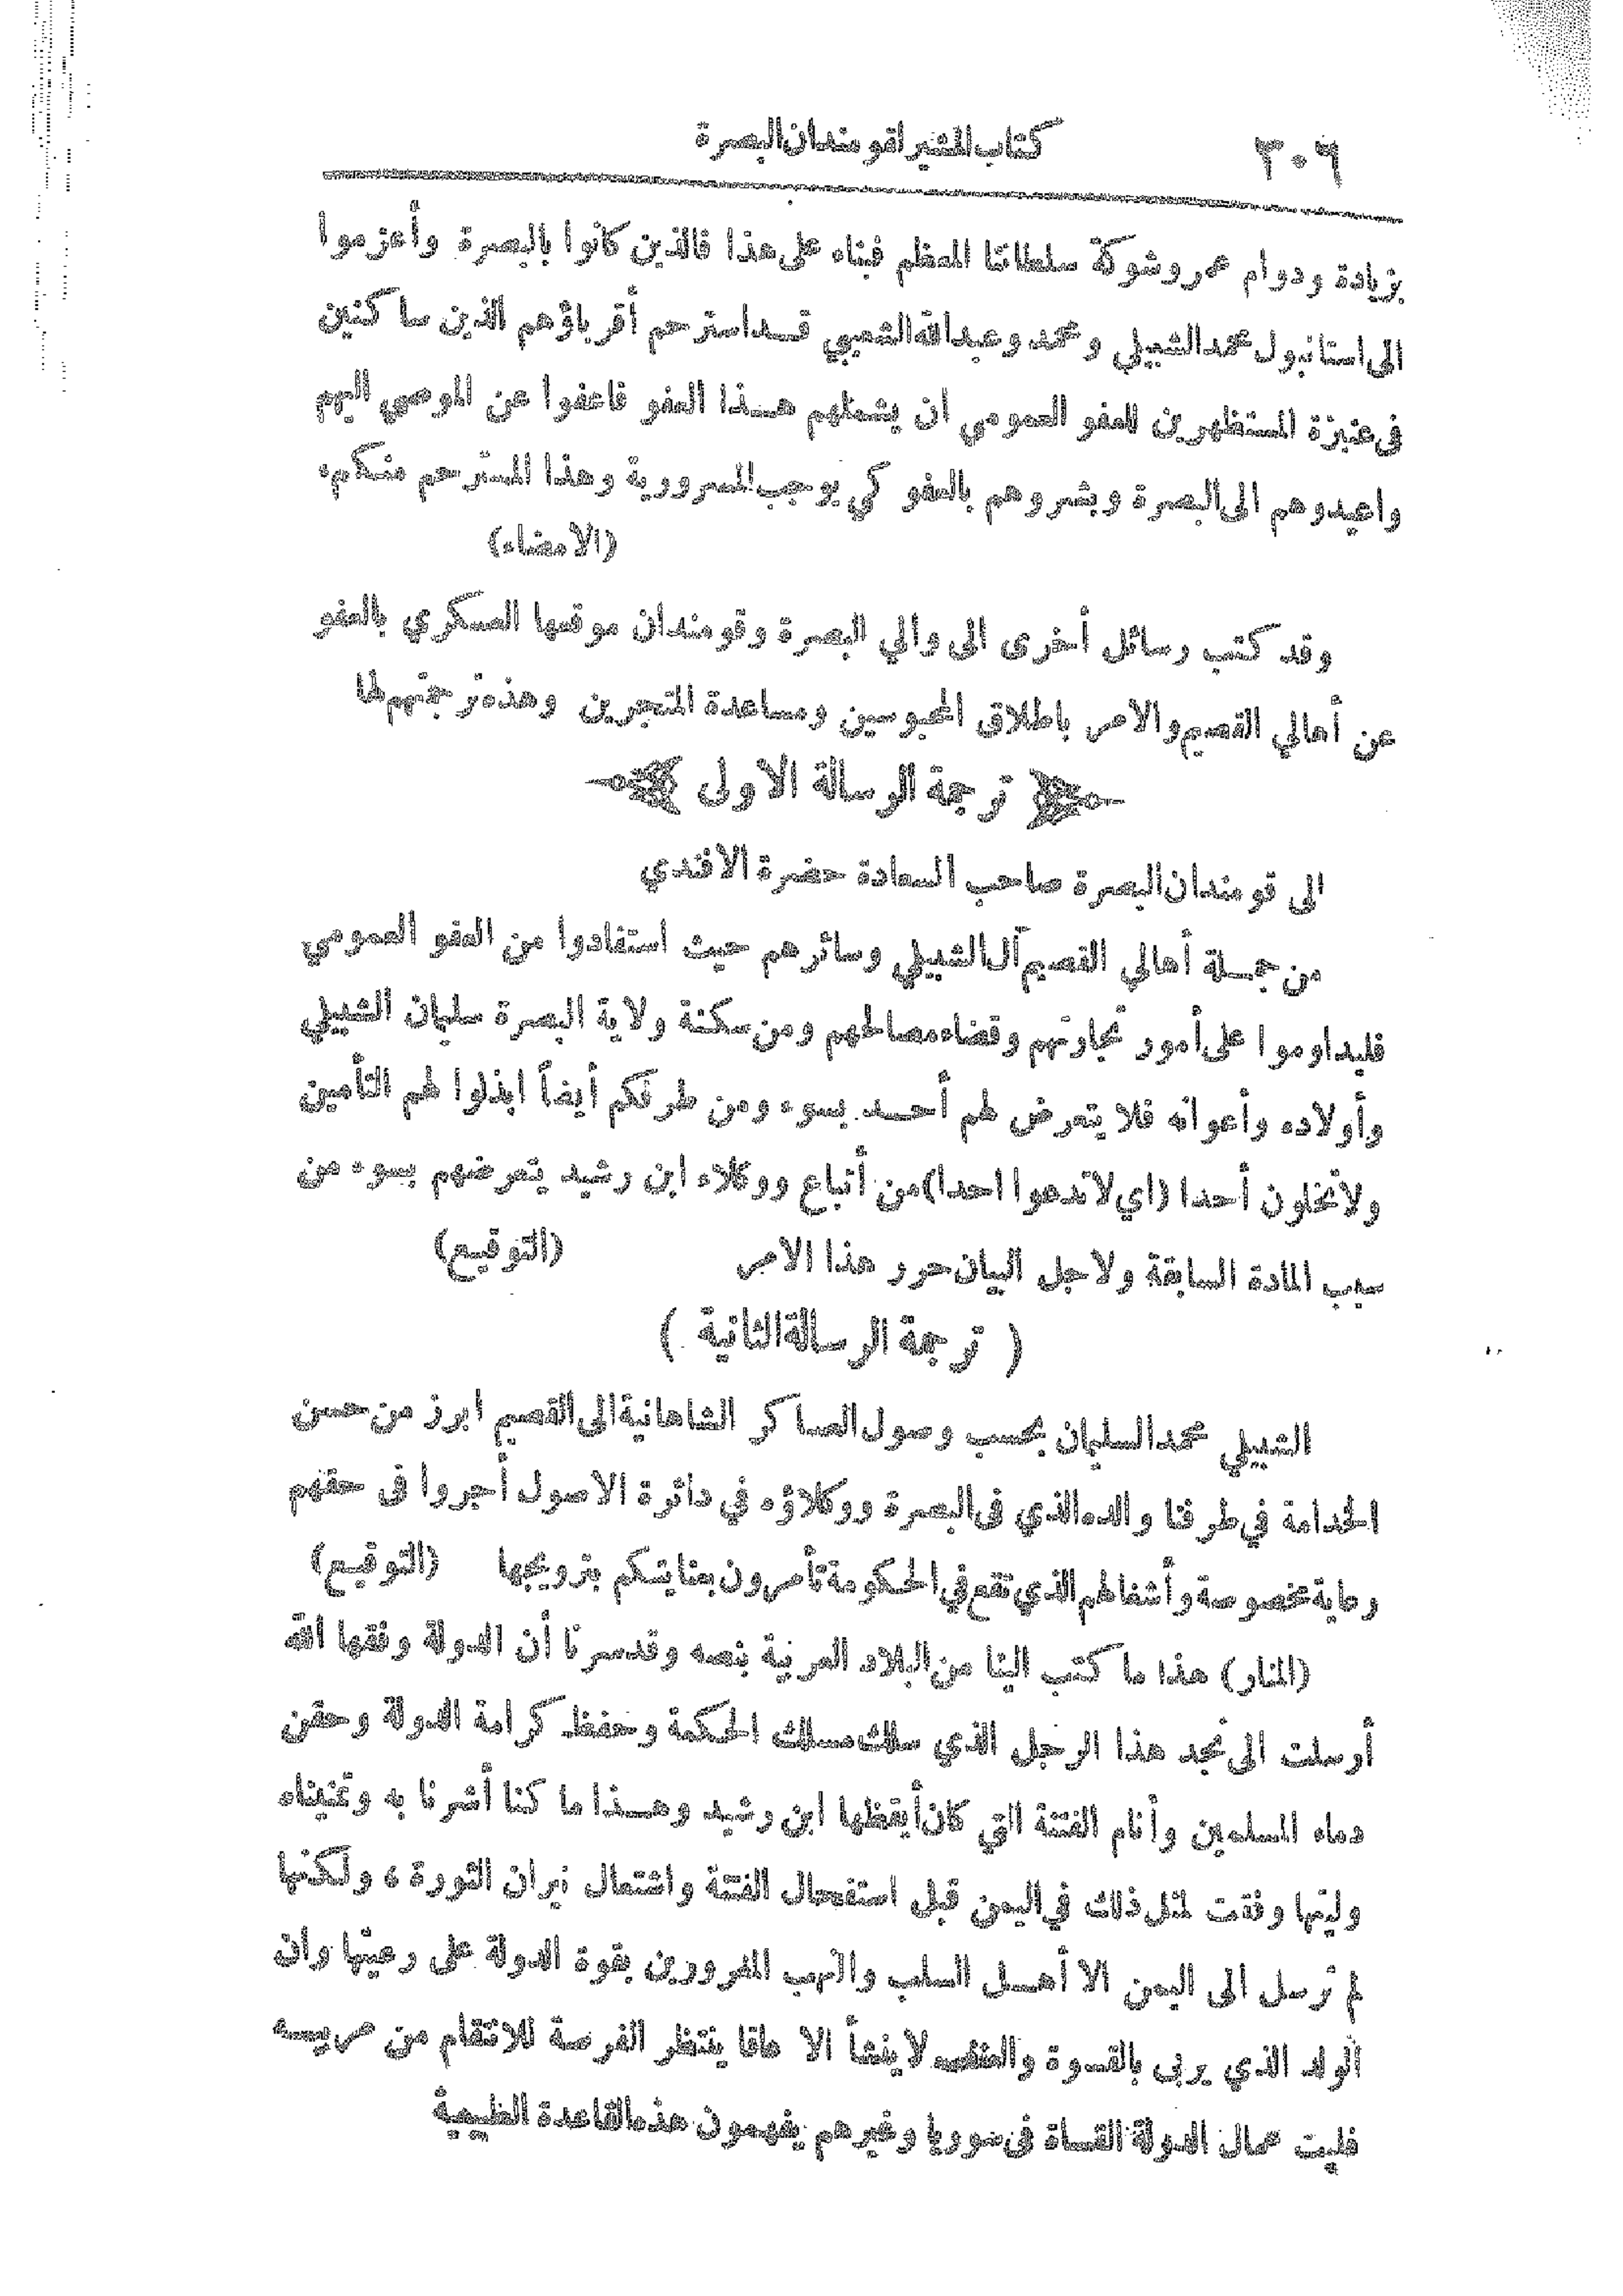 ٣٠٦ كتاب المشير لقومندان البصرة
بزيادة ودوام عمر وشوكة سلطاننا المعظم فبناء على هذا فالذين كانوا بالبصرة وأعزموا
الى استانبول محمد الشبيلي ومحمد وعبدالله الشعيبي قد استرحم أقرباؤهم الذين ساكنين
فى عنيزة المستظهرين للعفو العمومي ان يشملهم هذا العفو فاعفوا عن الموصي اليهم
واعيدوهم الى البصرة وبشروهم بالعفو كي يوجب المسرورية وهذا المسترحم منكم،
(الامضاء)
وقد كتب رسائل أخرى الى والي البصرة وقومندان موقعها العسكري بالعفو
عن أهالي القصيم والامر باطلاق المحبوسين ومساعدة المتجرين وهذه ترجمتهم لها
ترجمة الرسالة الاولى
الى قومندان البصرة صاحب السعادة حضرة الافندي
من جملة أهالي القصيم آل الشبيلي وسائرهم حيث استفادوا من العفو العمومي
فليداوموا على أمور تجارتهم وقضاء مصالحهم ومن سكنة ولاية البصرة سليمان الشبيلي
وأولاده وأعوانه فلا يتعرض لهم أحد بسوء ومن طرفكم أيضاً ابذلوا لهم التأمين
ولا تخلون أحدا (اي لا تدعوا احدا) من أتباع ووكلاء ابن رشيد يتعرضهم بسوء من
سبب المادة السابقة ولاجل البيان حرر هذا الامر (التوقيع)
( ترجمة الرسالة الثانية )
الشبيلي محمد السليمان بحسب وصول العساكر الشاهانية الى القصيم ابرز من حسن
الخدامة في طرفنا والده الذي فى البصرة ووكلاؤه في دائرة الاصول أجروا فى حقهم
رعاية مخصوصة وأشغالهم الذي تقع في الحكومة تأمرون بعنايتكم بترويجها (التوقيع)
(المنار) هذا ما كتب الينا من البلاد العربية بنصه وقد سرنا أن الدولة وفقها الله
أرسلت الى نجد هذا الرجل الذي سلك مسلك الحكمة وحفظ كرامة الدولة وحقن
دماء المسلمين وأنام الفتنة التي كان أيقظها ابن رشيد وهذا ما كنا أشرنا به وتمنيناه
وليتها وفقت لمثل ذلك في اليمن قبل استفحال الفتنة واشتعال نيران الثورة، ولكنها
لم ترسل الى اليمن الا أهل السلب والنهب المغرورين بقوة الدولة على رعيتها وان
الولد الذي يربى بالقسوة والعنف لا ينشأ الا عاقا ينتظر الفرصة للانتقام من مربيه
فليت عمال الدولة القساة فى سوريا وغيرهم يفهمون هذه القاعدة الطبيعية